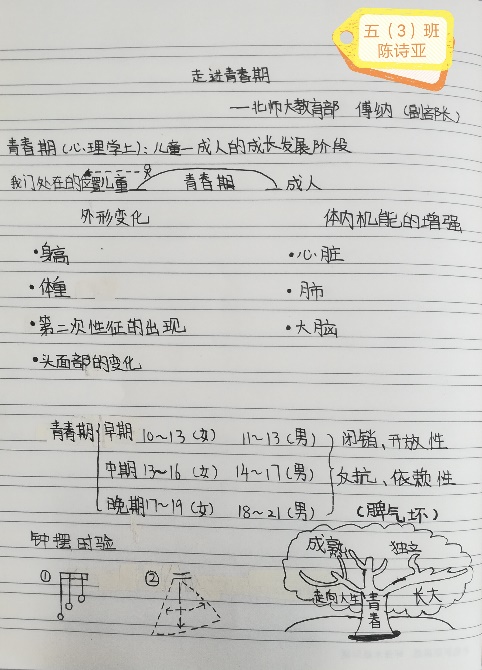 五(3)班
陈诗亚
走进青春期
——北师大教育部 傅纳(副部长)
青春期(心理学上):儿童—成人的成长发展阶段
我门处在的位置儿童 青春期 成人
外形变化 体内机能的增强
·身高 ·心脏
·体重 ·肺
·第二次性征的出现 ·大脑
·头面部的变化
青春期 早期 10~13(女) 11~13(男) 闭锁、开放性
中期 13~16(女) 14~17(男) 反抗、依赖性
晚期 17~19(女) 18~21(男) (脾气坏)
钟摆时验
① ②
成熟 独立
走向人生 青春 长大